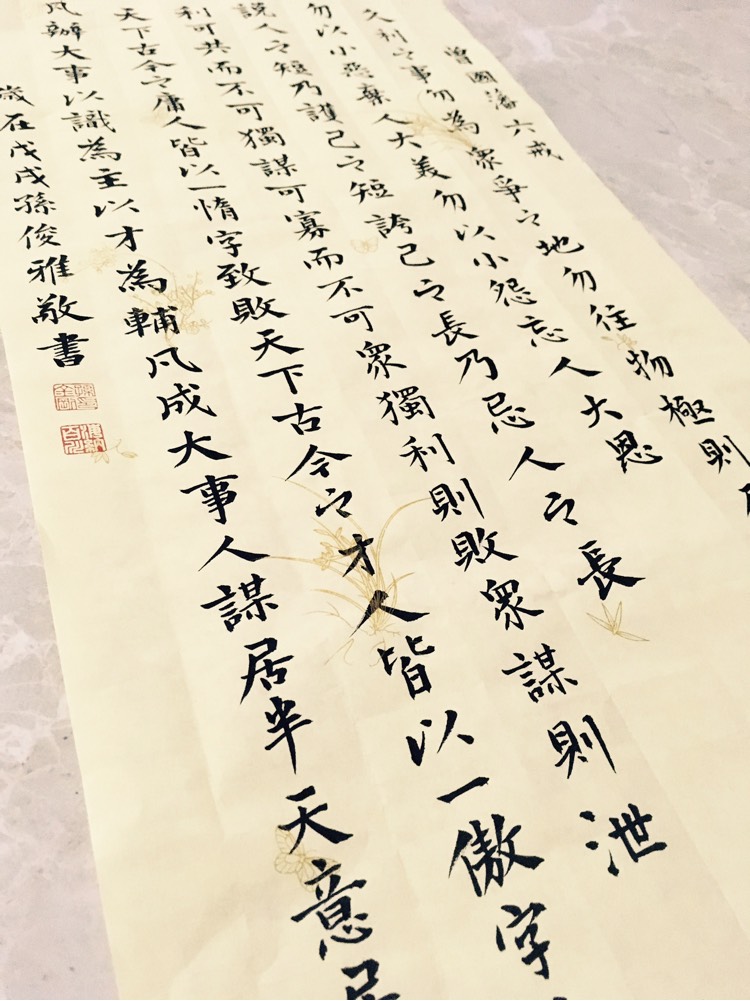 曾國藩六戒
久利之事勿為眾爭之地勿往物極則
勿以小惡棄人大美勿以小怨忘人大恩
說人之短乃護己之短誇己之長乃忌人之長
利可共而不可獨謀可寡而不可眾獨利則敗眾謀則泄
天下古今之庸人皆以一惰字致敗天下古今之才人皆以一傲字
凡辦大事以識為主以才為輔凡成大事人謀居半天意居
歲在戊戌孫俊雅敬書